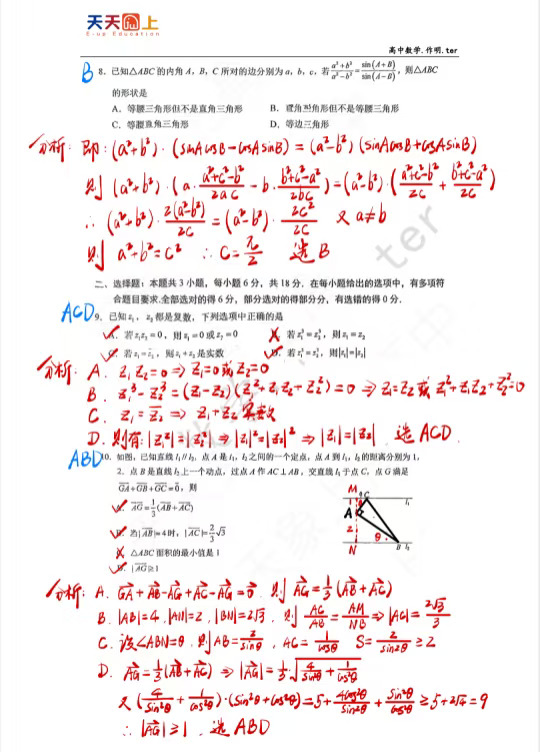 天天向上
E-up Education
高中数学.作明.ter
B 8. 已知△ABC的内角 A，B，C 所对的边分别为 a，b，c，若 (a²+b²)/(a²-b²) = sin(A+B)/sin(A-B)，则△ABC
的形状是
A．等腰三角形但不是直角三角形 B．直角三角形但不是等腰三角形
C．等腰直角三角形 D．等边三角形
分析：即：(a²+b²)·(sinAcosB-cosAsinB)=(a²-b²)(sinAcosB+cosAsinB)
则 (a²+b²)·(a·(a²+c²-b²)/2ac - b·(b²+c²-a²)/2bc)=(a²-b²)·((a²+c²-b²)/2c + (b²+c²-a²)/2c)
∴ (a²+b²)·2(a²-b²)/2c=(a²-b²)·2c²/2c 又 a≠b
则 a²+b²=c² ∴ C=π/2 选 B
二、选择题：本题共 3 小题，每小题 6 分，共 18 分．在每小题给出的选项中，有多项符
合题目要求.全部选对的得 6 分，部分选对的得部分分，有选错的得 0 分．
ACD 9. 已知 z₁，z₂ 都是复数，下列选项中正确的是
A．若 z₁z₂=0，则 z₁=0 或 z₂=0 B．若 z₁³=z₂³，则 z₁=z₂
C．若 z₁=z̄₂，则 z₁+z₂ 是实数 D．若 z₁²=z₂²，则|z₁|=|z₂|
分析：A. z₁z₂=0 ⇒ z₁=0或z₂=0
B. z₁³-z₂³=(z₁-z₂)(z₁²+z₁z₂+z₂²)=0 ⇒ z₁=z₂ 或 z₁²+z₁z₂+z₂²=0
C. z₁=z̄₂ ⇒ z₁+z₂ 实数
D. 则有|z₁²|=|z₂²| ⇒ |z₁|²=|z₂|² ⇒ |z₁|=|z₂| 选 ACD.
ABD 10. 如图，已知直线 l₁∥l₂，点 A 是 l₁，l₂ 之间的一个定点，点 A 到 l₁，l₂ 的距离分别为 1，
2．点 B 是直线 l₂ 上一个动点，过点 A 作 AC⊥AB，交直线 l₁ 于点 C，点 G 满足
GA+GB+GC=0，则
A．AG=1/3(AB+AC)
B．当|AB|=4 时，|AC|=2/3√3
C．△ABC 面积的最小值是 1
D．|AG|≥1
M C l₁
1
A
2 θ
N B l₂
分析：A. GA+AB-AG+AC-AG=0 则 AG=1/3(AB+AC)
B. |AB|=4，|AN|=2，|BN|=2√3，则 AC/AB=AM/NB ⇒ |AC|=2√3/3
C. 设∠ABN=θ 则 AB=2/sinθ，AC=1/cosθ S=2/sin2θ ≥2
D. AG=1/3(AB+AC) ⇒ |AG|=1/3·√(4/sin²θ+1/cos²θ)
又 (4/sin²θ+1/cos²θ)·(sin²θ+cos²θ)=5+4cos²θ/sin²θ+sin²θ/cos²θ ≥5+2√4=9
∴ |AG|≥1，选 ABD